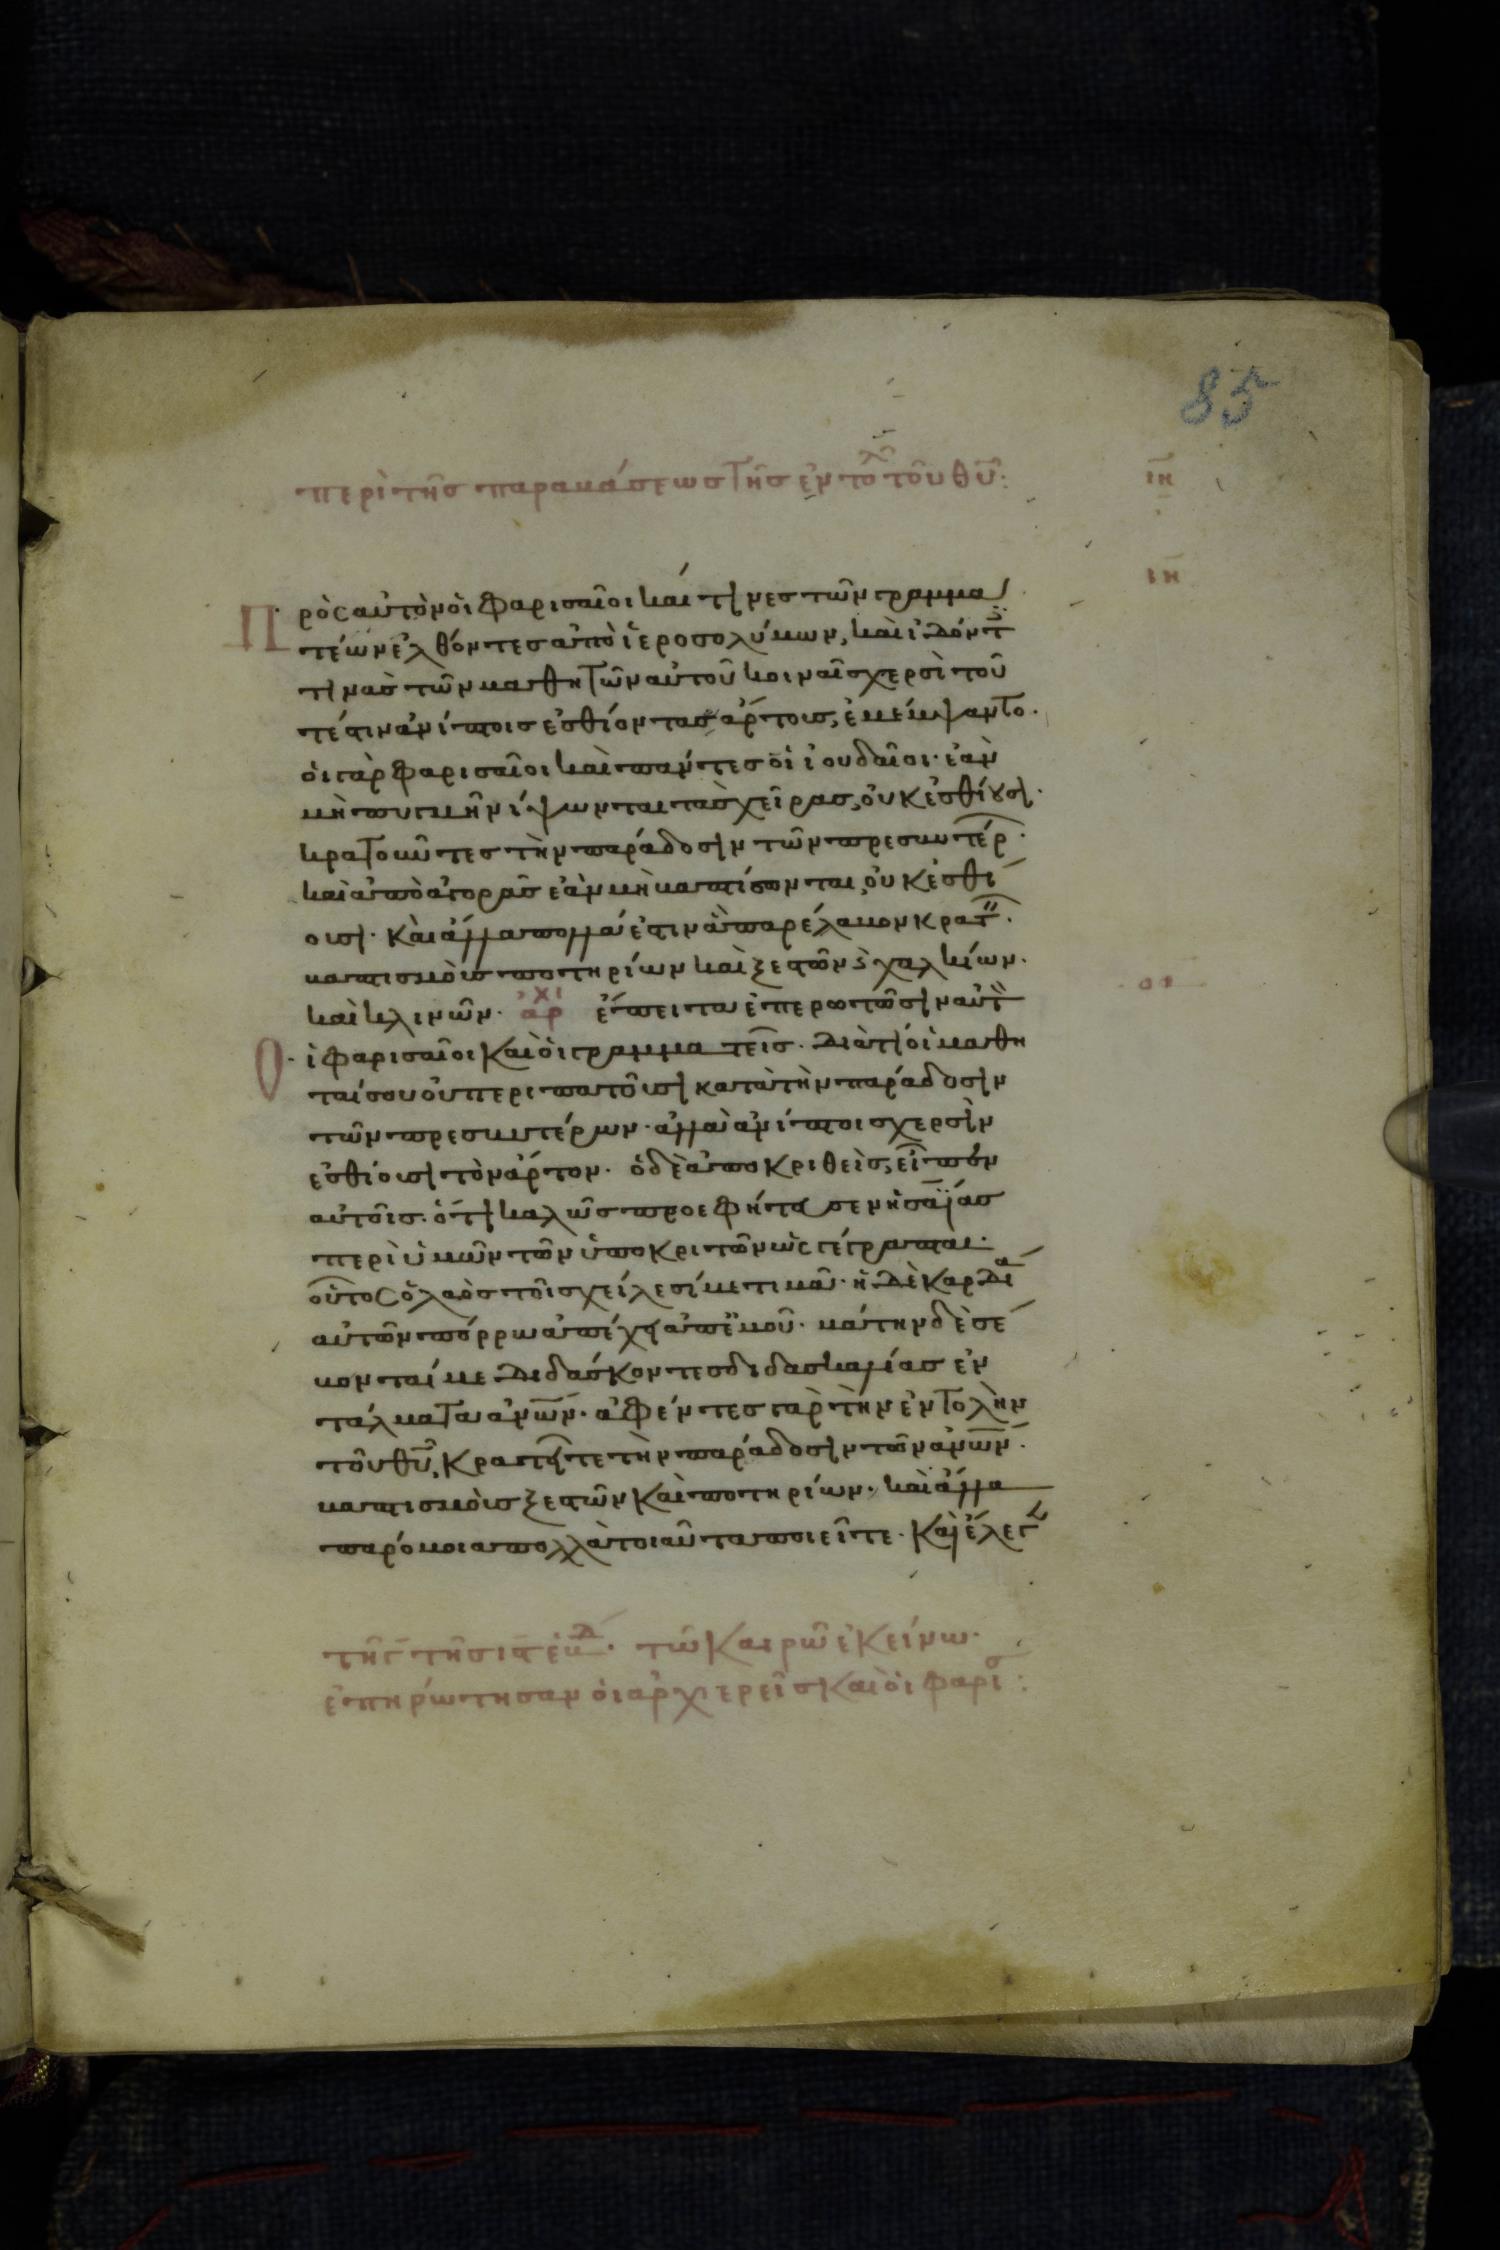 85
περὶ τῆς παραβάσεως τῆς ἐντολ τοῦ θυ:
ιη
ιη
Πρὸς αὐτὸν οἱ φαρισαῖοι καί τινες τῶν γραμμα
τέων ἐλθόντες ἀπὸ ἱεροσολύμων, καὶ ἰδόντ
τινὰς τῶν μαθητῶν αὐτοῦ κοιναῖς χερσὶ του
τέστιν ἀνίπτοις ἐσθίοντας ἄρτους, ἐμέμψαντο.
οἱ γὰρ φαρισαῖοι καὶ πάντες οἱ ἰουδαῖοι. ἐὰν
μὴ πυγμῆ νίψωνται τὰς χεῖρας, οὐκ ἐσθίουσι.
κρατοῦντες τὴν παράδοσιν τῶν πρεσβυτέρ.
καὶ ἀπὸ ἀγορᾶς ἐὰν μὴ βαπτίσωνται, οὐκ ἐσθί
ουσι. Καὶ ἄλλα πολλά ἐστιν ἃ παρέλαβον κρατ.
βαπτισμοὺς ποτηρίων καὶ ξεστῶν ϛ χαλκίων.
καὶ κλινῶν. ἀρχ ἔπειτα ἐπερωτῶσιν αὐτ
Οἱ φαρισαῖοι Καὶ οἱ γραμματεῖς. Διὰ τί οἱ μαθη
ταί σου οὐ περιπατοῦσι κατὰ τὴν παράδοσιν
τῶν πρεσβυτέρων. ἀλλὰ ἀνίπτοις χερσὶν
ἐσθίουσι τὸν ἄρτον. ὁ δὲ ἀποκριθεὶς, εἶπεν
αὐτοῖς. ὅτι καλῶς προεφήτευσεν ἡσαΐας
περὶ ὑμῶν τῶν ὑποκριτῶν ὡς γέγραπται.
οὗτος ὁ λαὸς τοῖς χείλεσί με τιμᾶ. ἡ δὲ καρδία
αὐτῶν πόρρω ἀπέχει ἀπ' ἐμοῦ. μάτην δὲ σέ
βονταί με διδάσκοντες διδασκαλίας ἐν
τάλματα ἀνων. ἀφέντες γὰρ τὴν ἐντολὴν
τοῦ θυ, Κρατεῖτε τὴν παράδοσιν τῶν ἀνων.
βαπτισμοὺς ξεστῶν καὶ ποτηρίων. καὶ ἄλλα
παρόμοια πολλὰ τοιαῦτα ποιεῖτε. Καὶ ἔλεγ
τῶ Καιρῶ ἐκείνω.
ἐπηρώτησαν οἱ ἀρχιερεῖς Καὶ οἱ φαρισ: